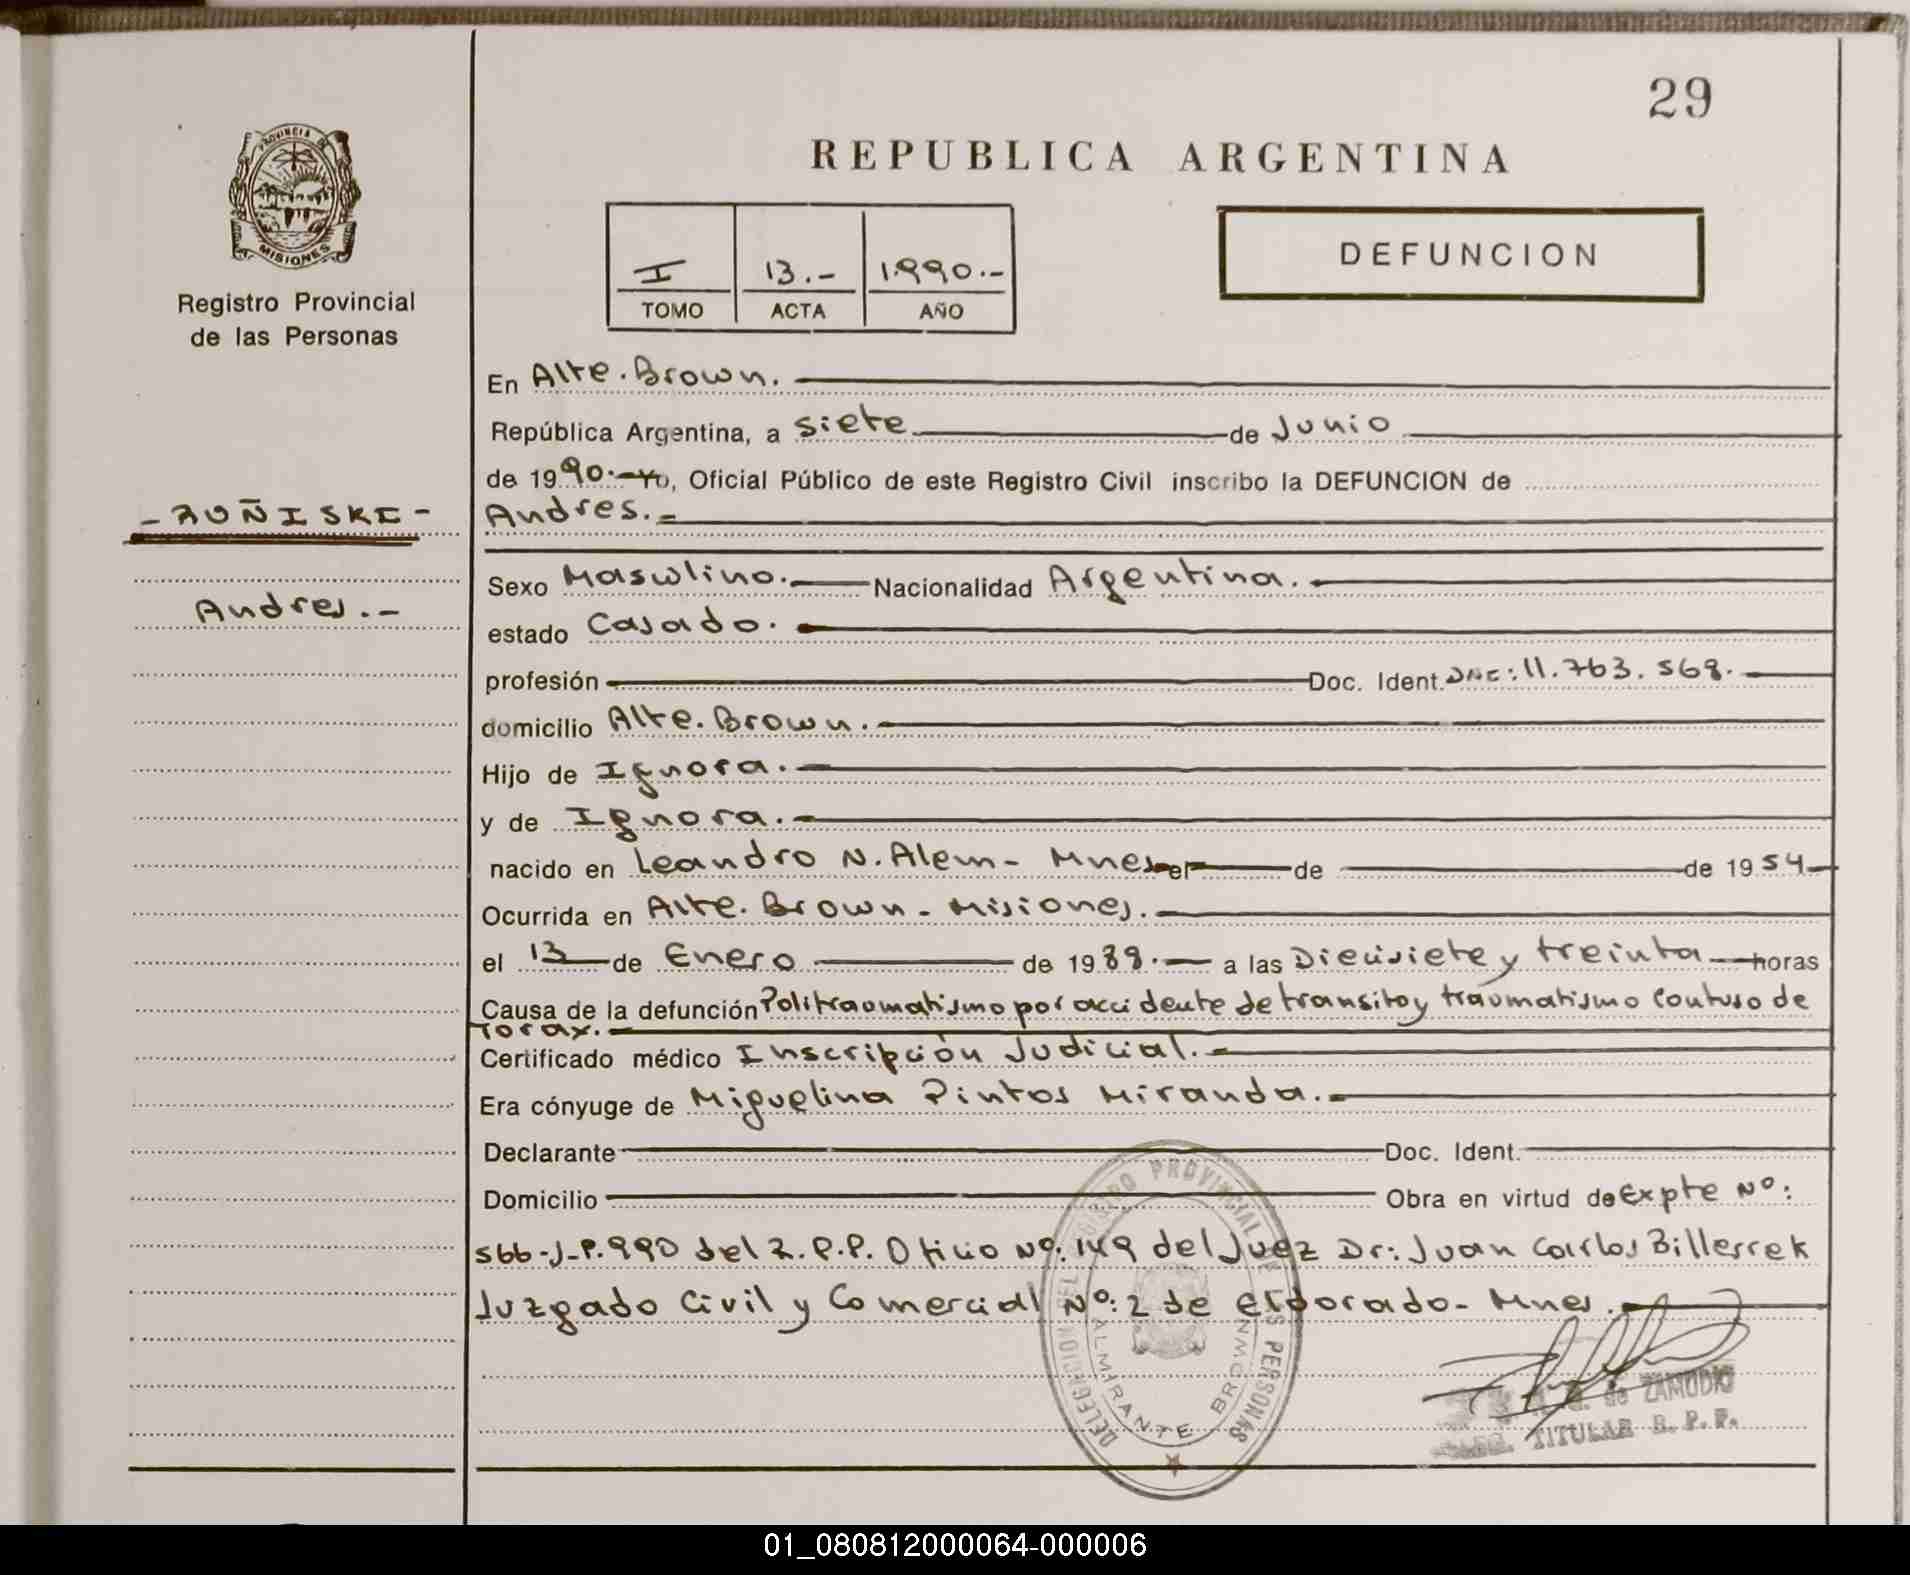 29
REPUBLICA ARGENTINA
PROVINCIA DE
MISIONES
Registro Provincial
de las Personas
I 13.- 1.990.-
TOMO ACTA AÑO
DEFUNCION
En Alte. Brown.
República Argentina, a siete de Junio
de 1990.- yo, Oficial Público de este Registro Civil inscribo la DEFUNCION de
- ZUÑISKI -
Andres.-
Andres.-
Sexo Masculino. Nacionalidad Argentina.
estado Casado.
profesión Doc. Ident. DNI: 11.763.568.
domicilio Alte. Brown.
Hijo de Ignora.-
y de Ignora.-
nacido en Leandro N. Alem- Mnes el de de 1954
Ocurrida en Alte. Brown - Misiones.
el 13 de Enero de 1989.- a las Diecisiete y treinta horas
Causa de la defunción Politraumatismo por accidente de transito y traumatismo contuso de
Torax.-
Certificado médico Inscripción Judicial.-
Era cónyuge de Miguelina Pintos Miranda.-
Declarante Doc. Ident.
Domicilio Obra en virtud de Expte Nº:
566-J-P.990 del R.P.P. Oficio Nº: 149 del Juez Dr: Juan Carlos Billerrek
Juzgado Civil y Comercial Nº: 2 de Eldorado- Mnes.
DELEGACION DEL REGISTRO PROVINCIAL DE LAS PERSONAS
ALMIRANTE BROWN
de ZAMUDIO
TITULAR R. P. P.
01_080812000064-000006